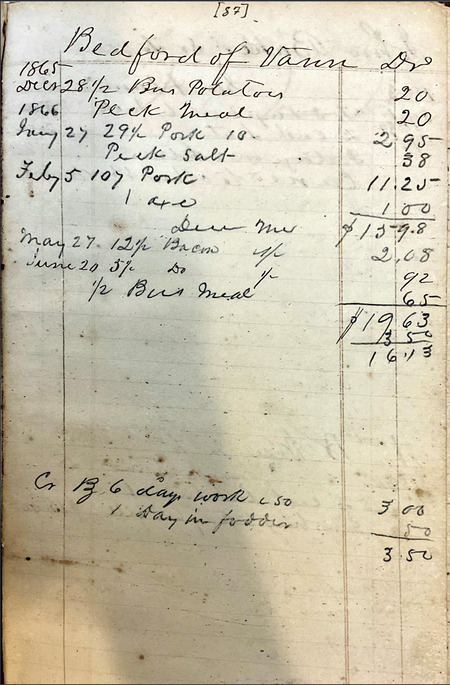 [87]
Bedford of Vann Dr
1865
Decr 28 1/2 Bus Potatoes 20
1866 Peck Meal 20
Jany 27 29 1/2 Pork 10 2 95
Peck Salt 38
Feby 5 107 Pork 11.25
1 axe 1 00
Due Me $15 98
May 27 12 1/2 Bacon 2,08
June 20 5 1/2 Do 92
1/2 Bus Meal 65
$19 63
3 50
16 13
Cr By 6 days work c50 3 00
1 Day in fodder 50
3.50